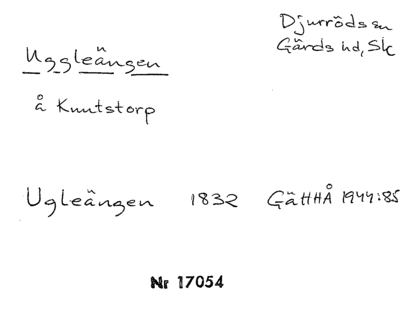 Djurröds sn
Gärds hd, Sk
Uggleängen
å Knutstorp
Ugleängen 1832 GäHHÅ 1944:85
Nr 17054